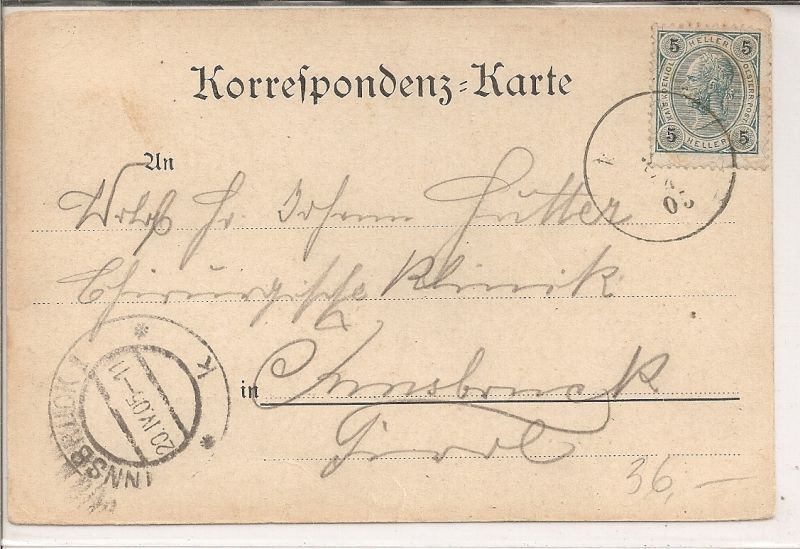 5 HELLER 5
KAIS. KOENIGL. OESTERR. POST
5 HELLER 5
Korreſpondenz-Karte
05
An
Wolch. Hr. Johann Hutter
Chirurgische Klinik
in Innsbruck
Tirol
INNSBRUCK 1
20.IV.05-11
* K *
36,—